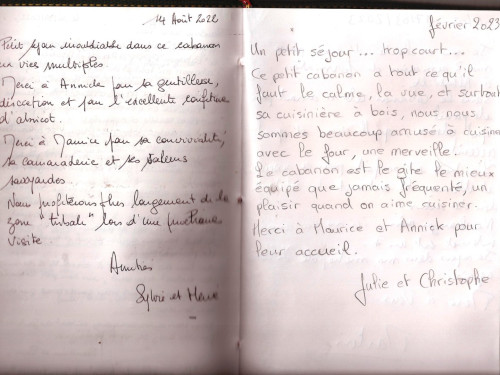 14 Août 2022
Petit séjour inoubliable dans ce cabanon
aux vies multiples.
Merci à Annick pour sa gentillesse,
discrétion et pour l'excellente confiture
d'abricot.
Merci à Maurice pour sa convivialité,
sa camaraderie et ses talents
savoyardes.
Nous profiterons plus largement de la
zone "tribale" lors d'une prochaine
visite.
Amitiés
Sylvie et Hervé
février 2023
Un petit séjour... trop court...
Ce petit cabanon a tout ce qu'il
faut le calme, la vue, et surtout
sa cuisinière à bois, nous nous
sommes beaucoup amusé à cuisine
avec le four, une merveille.
Le cabanon est le gîte le mieux
équipé que jamais fréquenté, un
plaisir quand on aime cuisiner.
Merci à Maurice et Annick pour
leur accueil.
Julie et Christophe